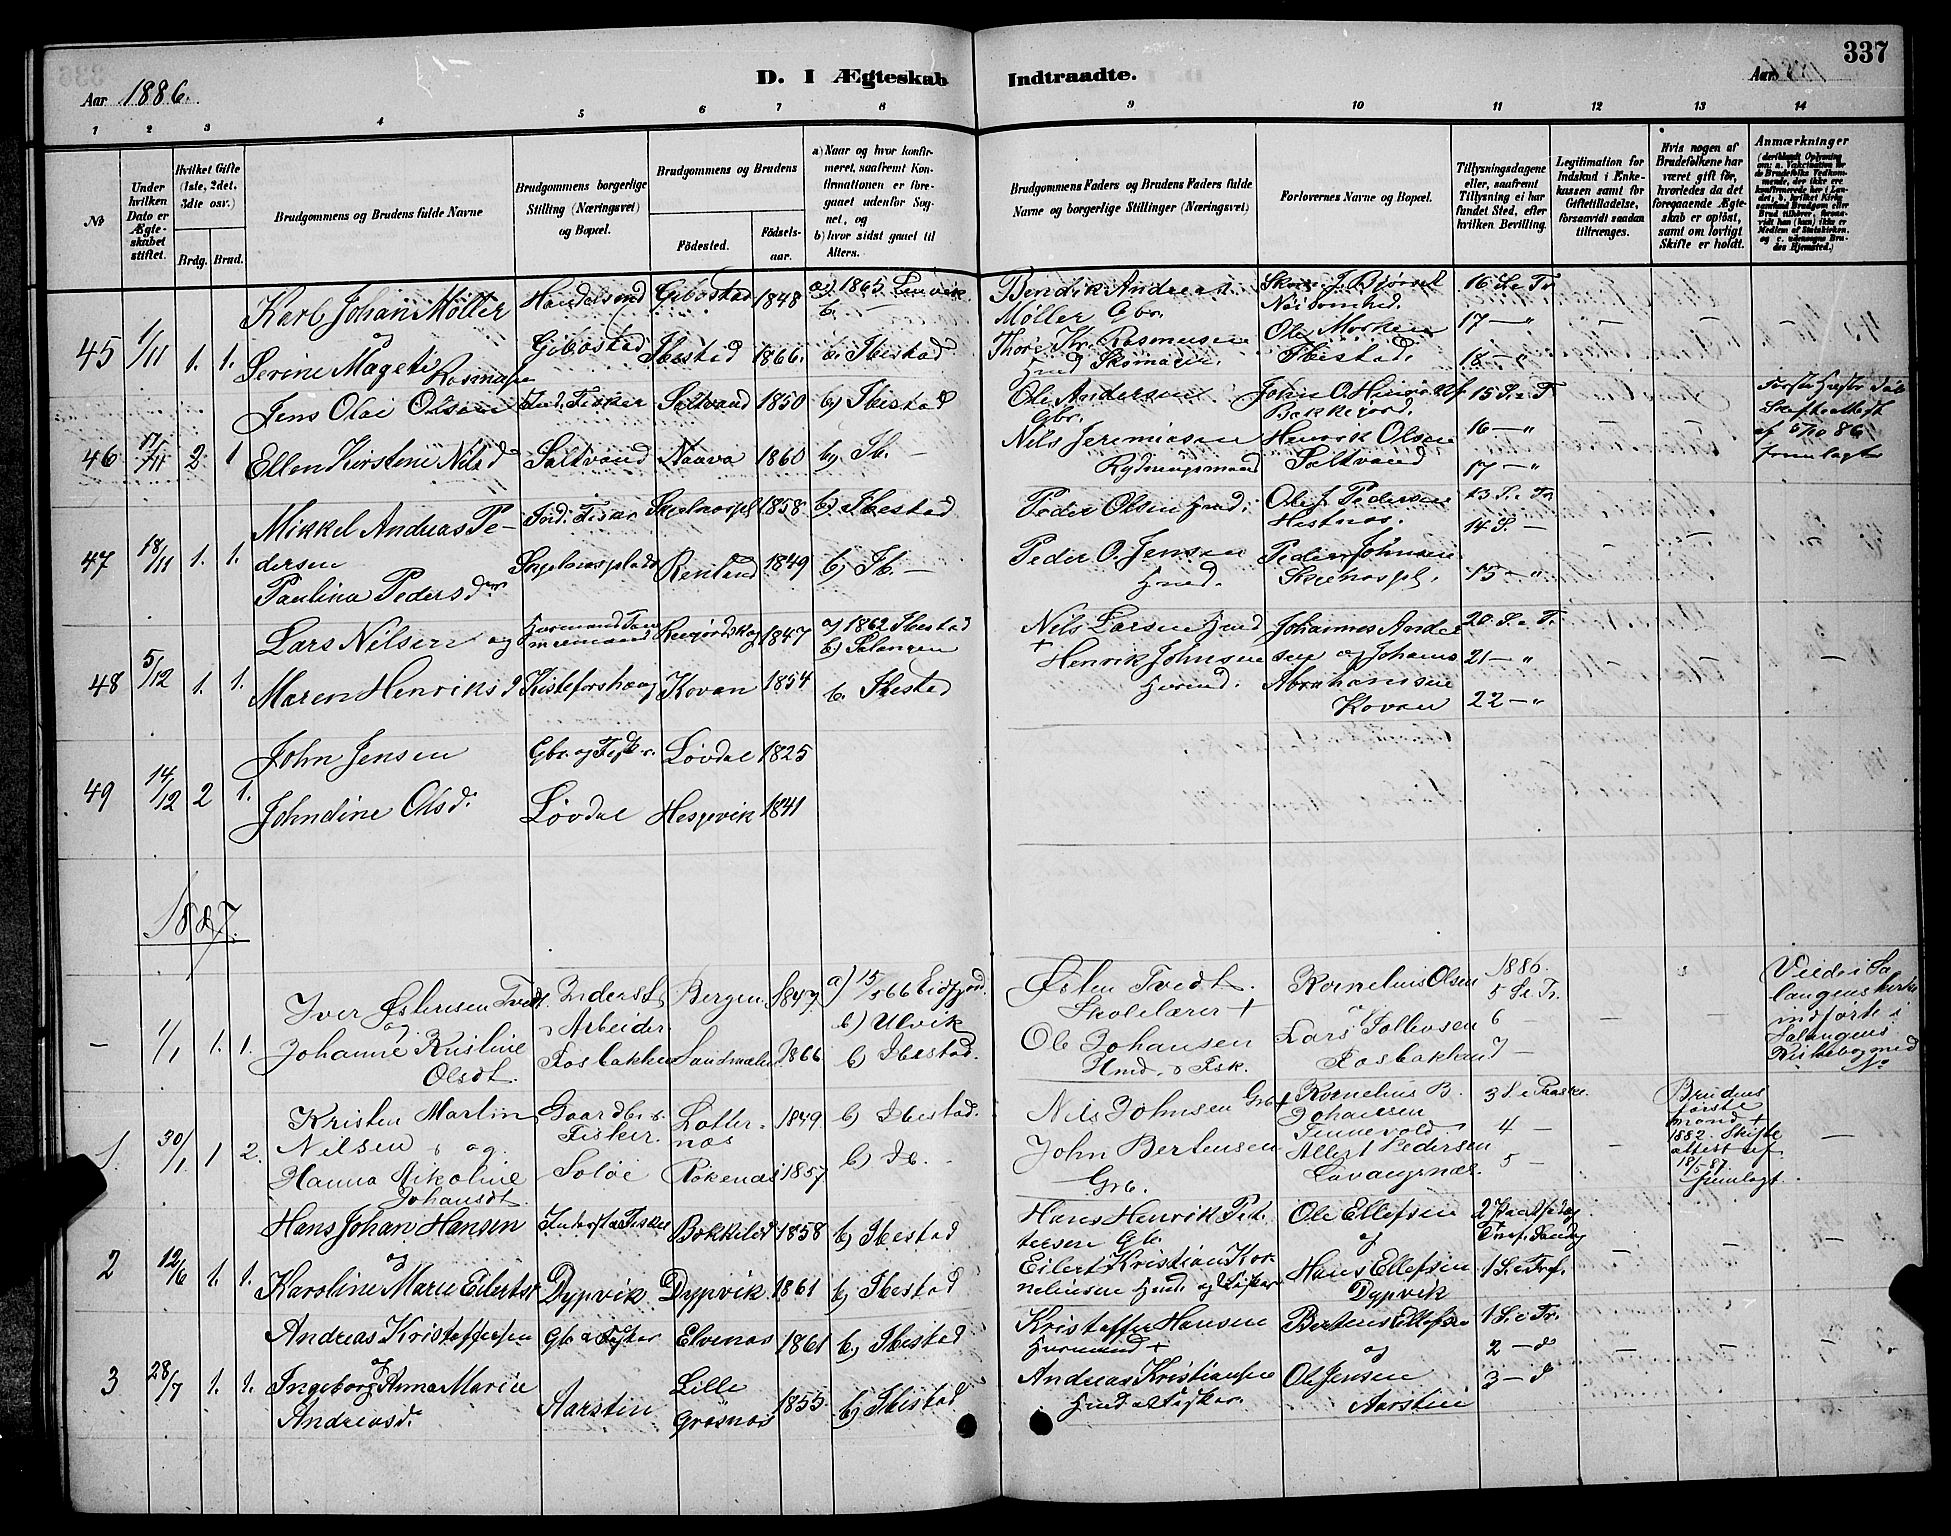 337
D. I Ægteskab Indtraadte.
Aar 1886.
Aar
1 2 3 4 5 6 7 8 9 10 11 12 13 14
No
Under hvilken Dato er Ægteskabet stiftet.
Hvilket Gifte (1ste, 2det, 3die osv.)
Brdg. Brud.
Brudgommens og Brudens fulde Navne
Brudgommens borgerlige Stilling (Næringsvei) og Bopæl.
Brudgommens og Brudens
Fødested.
Fødselsaar.
a) Naar og hvor konfirmeret, saafremt Konfirmationen er foregaaet udenfor Sognet, og
b) hvor sidst gaaet til Alters.
Brudgommens Faders og Brudens Faders fulde Navne og borgerlige Stillinger (Næringsvei)
Forlovernes Navne og Bopæl.
Tillysningsdagene eller, saafremt Tillysning ei har fundet Sted, efter hvilken Bevilling.
Legitimation for Indskud i Enkekassen samt for Giftetilladelse, forsaavidt saadan tiltrænges.
Hvis nogen af Brudefolkene har været gift før, hvorledes da det foregaaende Ægteskab er opløst, samt om lovligt Skifte er holdt.
Anmærkninger
45 1/11 1. 1.
Karl Johan Møller
og
Serine Magete Rasmusse
Handelsmd
Gibostad
Gibostad 1848 a) 1865 Lenvik
b. —
Ibestad 1866. b. Ibestad
Bendik Andreas
Møller Gbr.
Thor Kr. Rasmusen
Hmd Skomager.
Ole Morken
Ibestad.
16 S. e Tr.
17 — "
18 — "
46 17/11 2 1
Jens Olai Olsen
Ellen Kirstene Nilsd
Ind. Fisker
Saltvand
Saltvand 1850 b) Ibestad
Naava 1860 b) Ib. —
Ole Andersen
Gbr.
Nils Jeremiasen
Rydningsmand
Bekkejord.
Henrik Olsen
Saltvand
15 S. e T
16 — "
17 — "
47 18/11 1. 1.
Mikkel Andreas Pe-
dersen
Paulina Pedersdr
Ind. Fisker
1858 b) Ibestad
Renland 1849 b) Ib. —
Peder Olsen Hmd.
Peder O. Jensen
Hmd.
Ole J. Pedersen
Hestnes.
Peder Johnsen
13 S. e Tr
14 S. —
15 — "
48 5/12 1. 1.
Lars Nilsen og
Maren Henriksd
Kisteforshaug
1847 a) 1862 Ibestad
b) Salangen
Kovan 1854 b. Ibestad
Nils Larsen Hmd
+
Henrik Johnsen
Hmd.
Johannes Ander
sen og Johans
Abrahamsen
Kovan
20 S. e T.
21 — "
22 — "
49 14/12 2 1.
John Jensen
Johndine Olsd.
Gbr. og Fisker.
Løvdal
Løvdal 1825
Hesjevik 1841
1887.
— 1/1 1. 1.
Iver Østensen Tvedt
og
Johanne Kristine
Olsdt.
Inderst
& Arbeider
Fosbakken
Bergen 1847. a) 15/5 66 Eidfjord.
b) Ulvik
1866 b) Ibestad.
Østen Tvedt.
Skolelærer +
Ole Johansen
Hmd. & Fsk.
Kornelius Olsen
Lars Tollevsen
Fosbakken
1886.
5 S. e. Tr.
6 —
7 —
Viede i Sa
langens Kirke
indførte i
Salangens
Kirkebog
1. 30/1 1 2.
Kristen Martin
Nilsen & og
Hanna Nikoline
Johansdt.
Gaardbr. &
Fisker.
Soløi
Lotter-
næs 1849 b) Ibestad.
Røkenes 1857 b) Ib. —
Nils Johnsen Grb +
John Berteusen
Grb.
Kornelius B.
Johansen
Tennevold
Albert Pedersen
Lavangsnæs.
3 S. e Paaske.
4 —
5 —
Brudens
første
mand +
1882. Skifte
attest af
18/5 87
fremlagt.
2 12/6 1. 1.
Hans Johan Hansen
og
Karoline Marie Eilertsd
Inderst & Fisker
Dypvik
1858 b) Ibestad
Dypvik. 1861 b) Ibestad
Hans Henrik Pet.
tersen Gb.
Eilert Kristian Kor
neliusen Hmd. og Fisker.
Ole Ellefsen
og
Hans Ellefsen
Dypvik
1 S. e Tref.
3 28/7 1. 1.
Andreas Kristoffersen
og
Ingeborg Anna Marie
Andreasd.
Gb & Fisker
Aarsten
Elvenes 1861 b) Ibestad
Lille
Grøsnes 1855. b) Ibestad
Kristoffer Hansen
Husmand +
Andreas Kristiansen
Hmd & Fisker.
Berteus Ellefsen
og
Ole Jensen
Aarsten
1 S. e Tr.
2 — d
3 — d